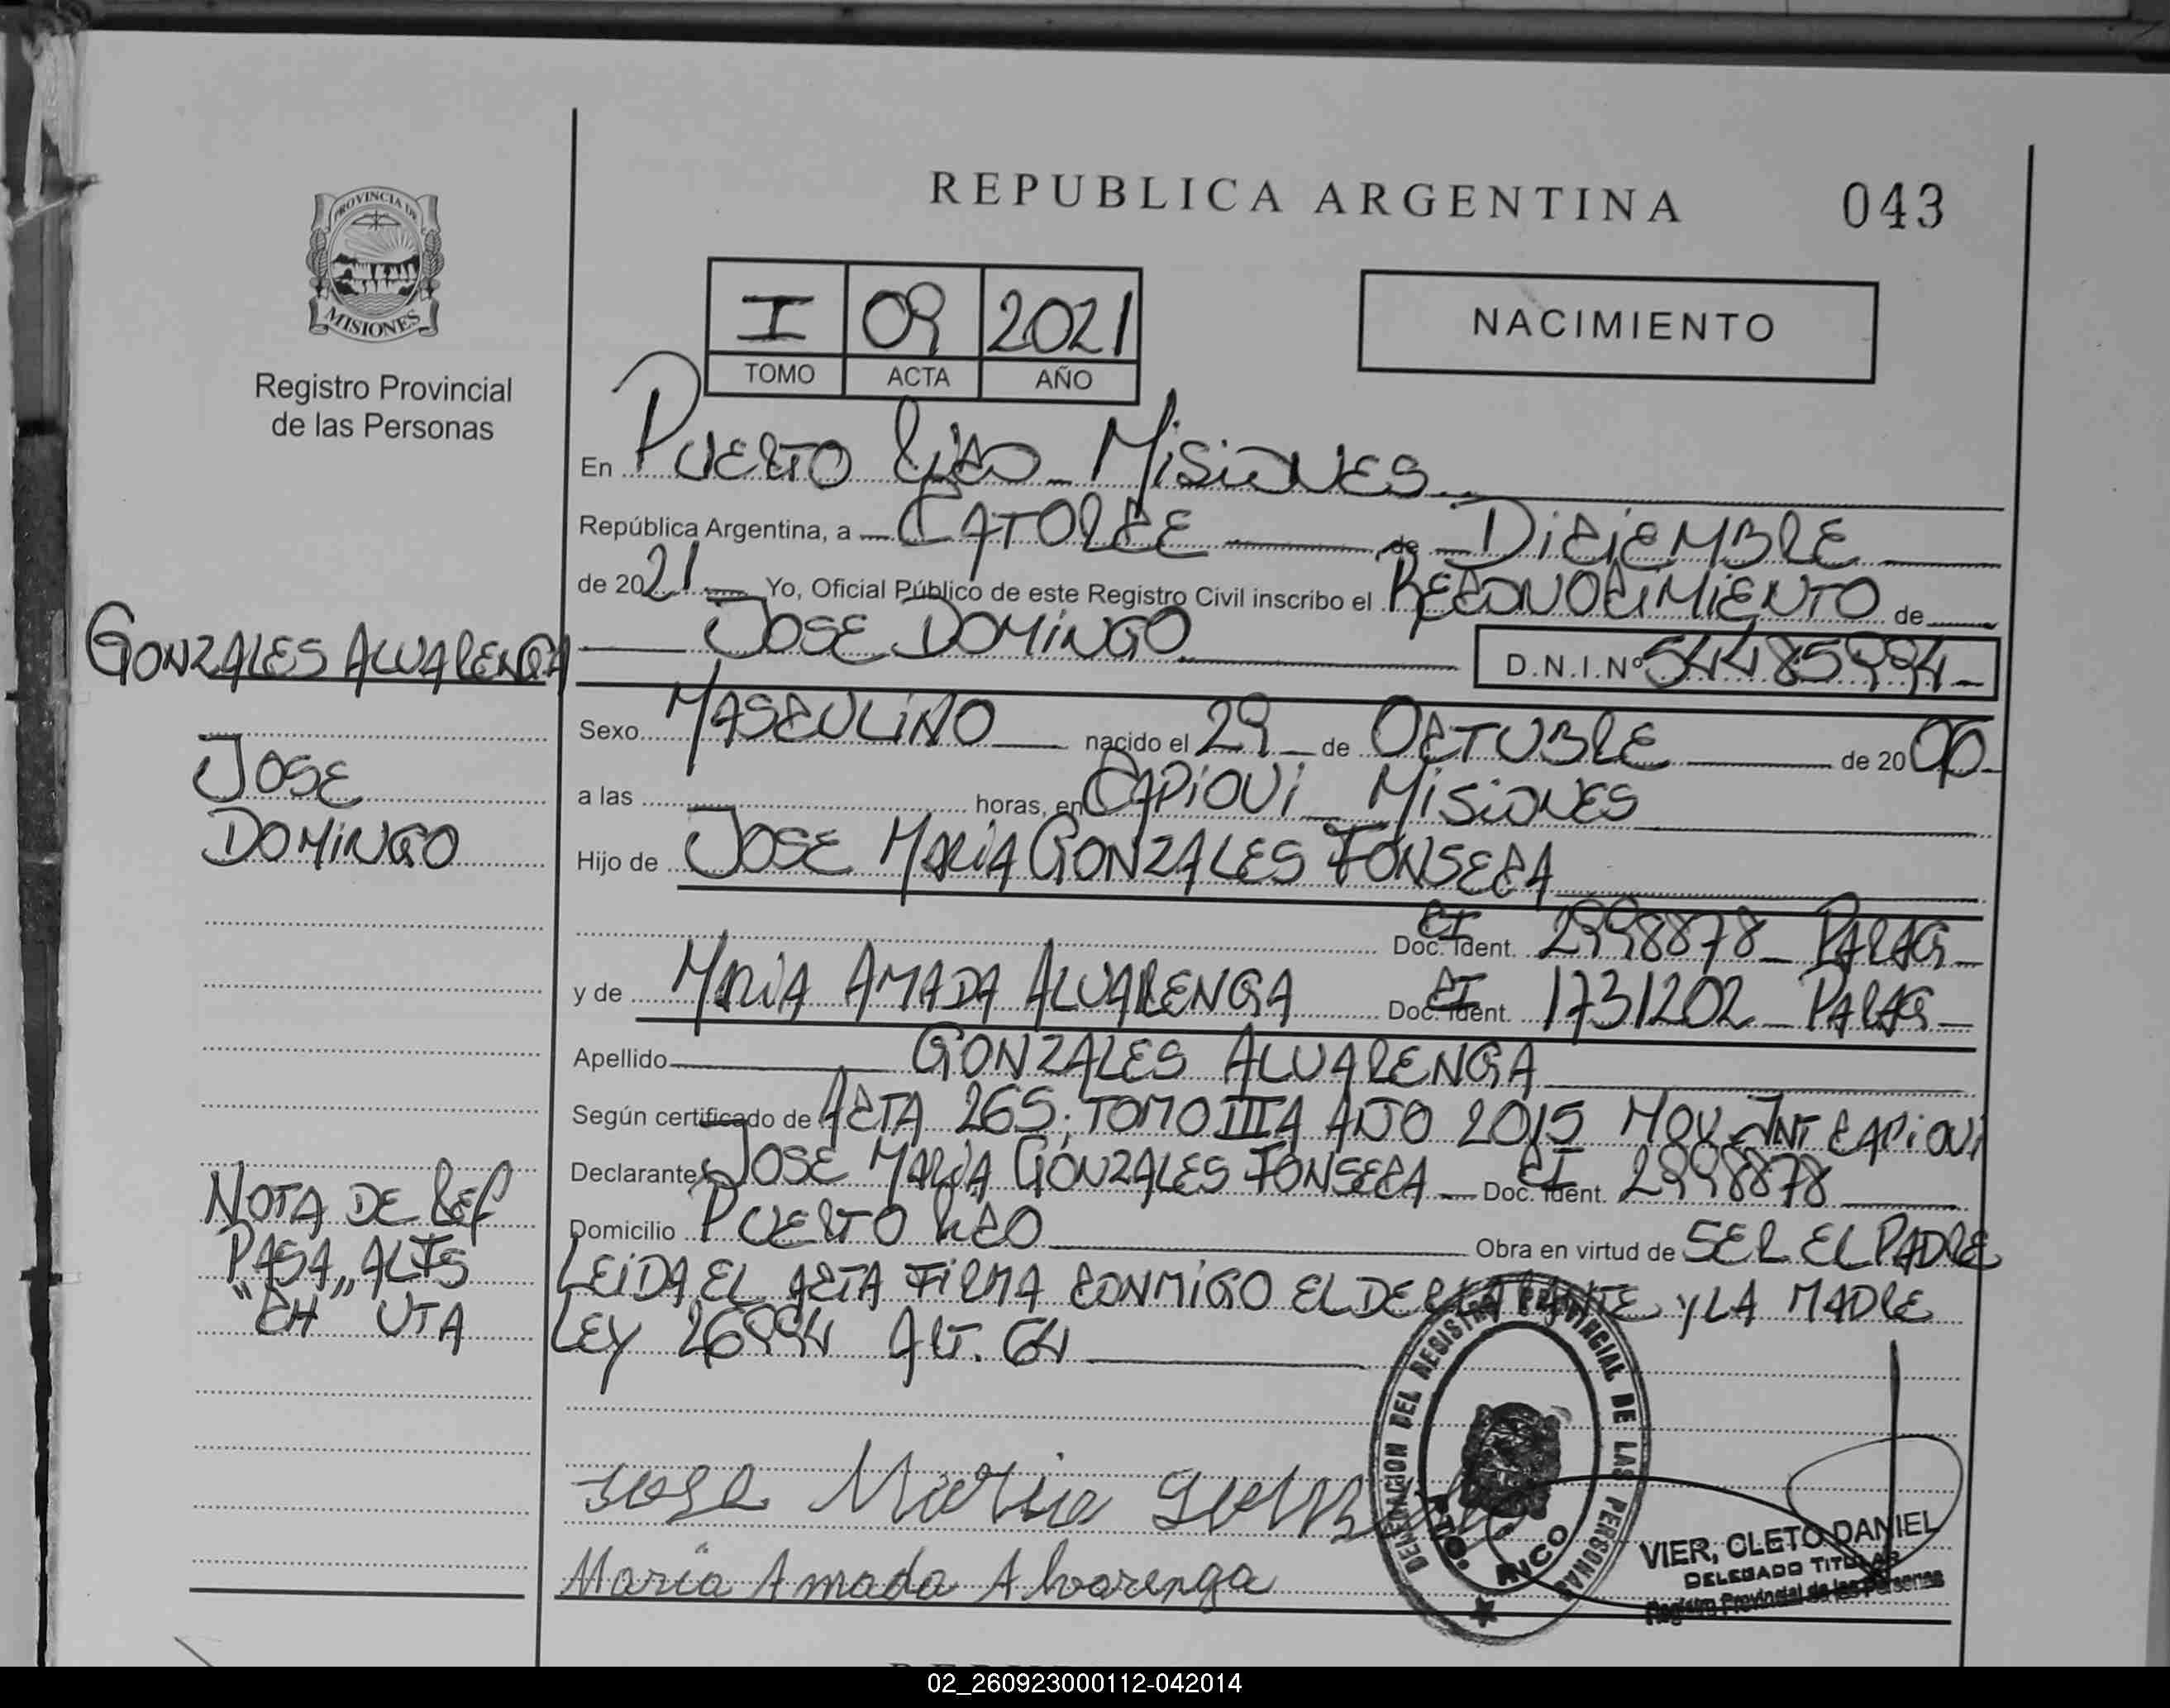 REPUBLICA ARGENTINA
043
PROVINCIA DE
MISIONES
Registro Provincial
de las Personas
I 09 2021
TOMO ACTA AÑO
NACIMIENTO
En PUERTO RICO - MISIONES
República Argentina, a CATORCE de DICIEMBRE
de 2021 Yo, Oficial Público de este Registro Civil inscribo el RECONOCIMIENTO de
JOSE DOMINGO D.N.I.Nº 54485994
Sexo MASCULINO nacido el 29 de OCTUBRE de 20
a las horas, en CAPIOVI - MISIONES
Hijo de JOSE MARIA GONZALES FONSECA
CI Doc. Ident. 2998878 - PARAG -
y de MARIA AMADA ALVARENGA CI Doc. Ident. 1731202 - PARAG -
Apellido GONZALES ALVARENGA
Según certificado de ACTA 265; TOMO III A AÑO 2015 INT CAPIOVI
Declarante JOSE MARIA GONZALES FONSECA CI Doc. Ident. 2998878
Domicilio PUERTO RICO Obra en virtud de SER EL PADRE
LEIDA EL ACTA FIRMA CONMIGO EL DECLARANTE Y LA MADRE
LEY 26994 ART. 64
GONZALES ALVARENGA
JOSE
DOMINGO
NOTA DE REF
PASA ALTS
"CH" UTA
Jose Maria
Maria Amada Alvarenga
DELEGACION DEL REGISTRO PROVINCIAL DE LAS PERSONAS
PTO. RICO
VIER, CLETO DANIEL
DELEGADO TITULAR
Registro Provincial de las Personas
02_260923000112-042014